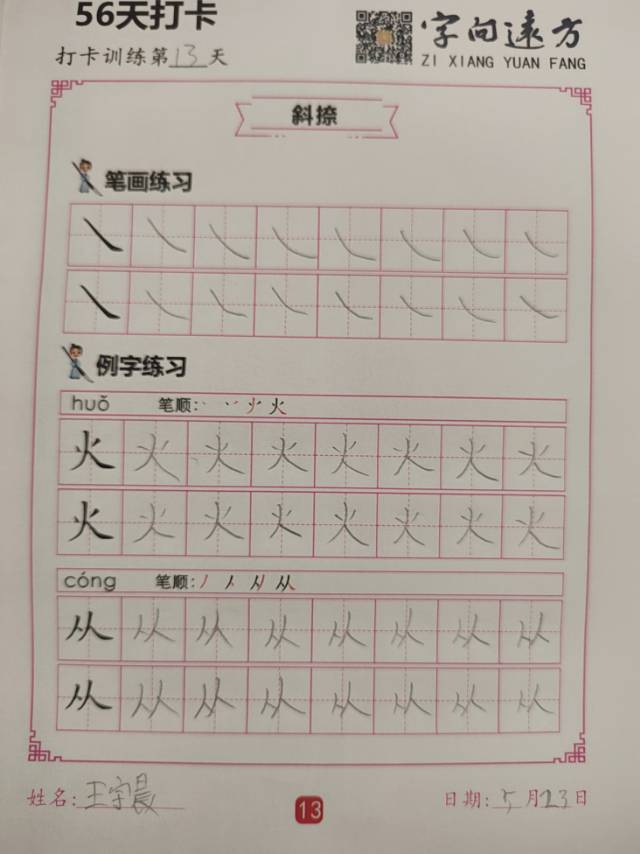 56天打卡
字向遠方
打卡训练第13天
ZI XIANG YUAN FANG
斜捺
笔画练习
例字练习
huǒ 笔顺: 火
火 火 火 火 火 火 火 火
火 火 火 火 火 火 火 火
cóng 笔顺: 从
从 从 从 从 从 从 从 从
从 从 从 从 从 从 从 从
姓名: 王宇晨
13
日期: 5月23日